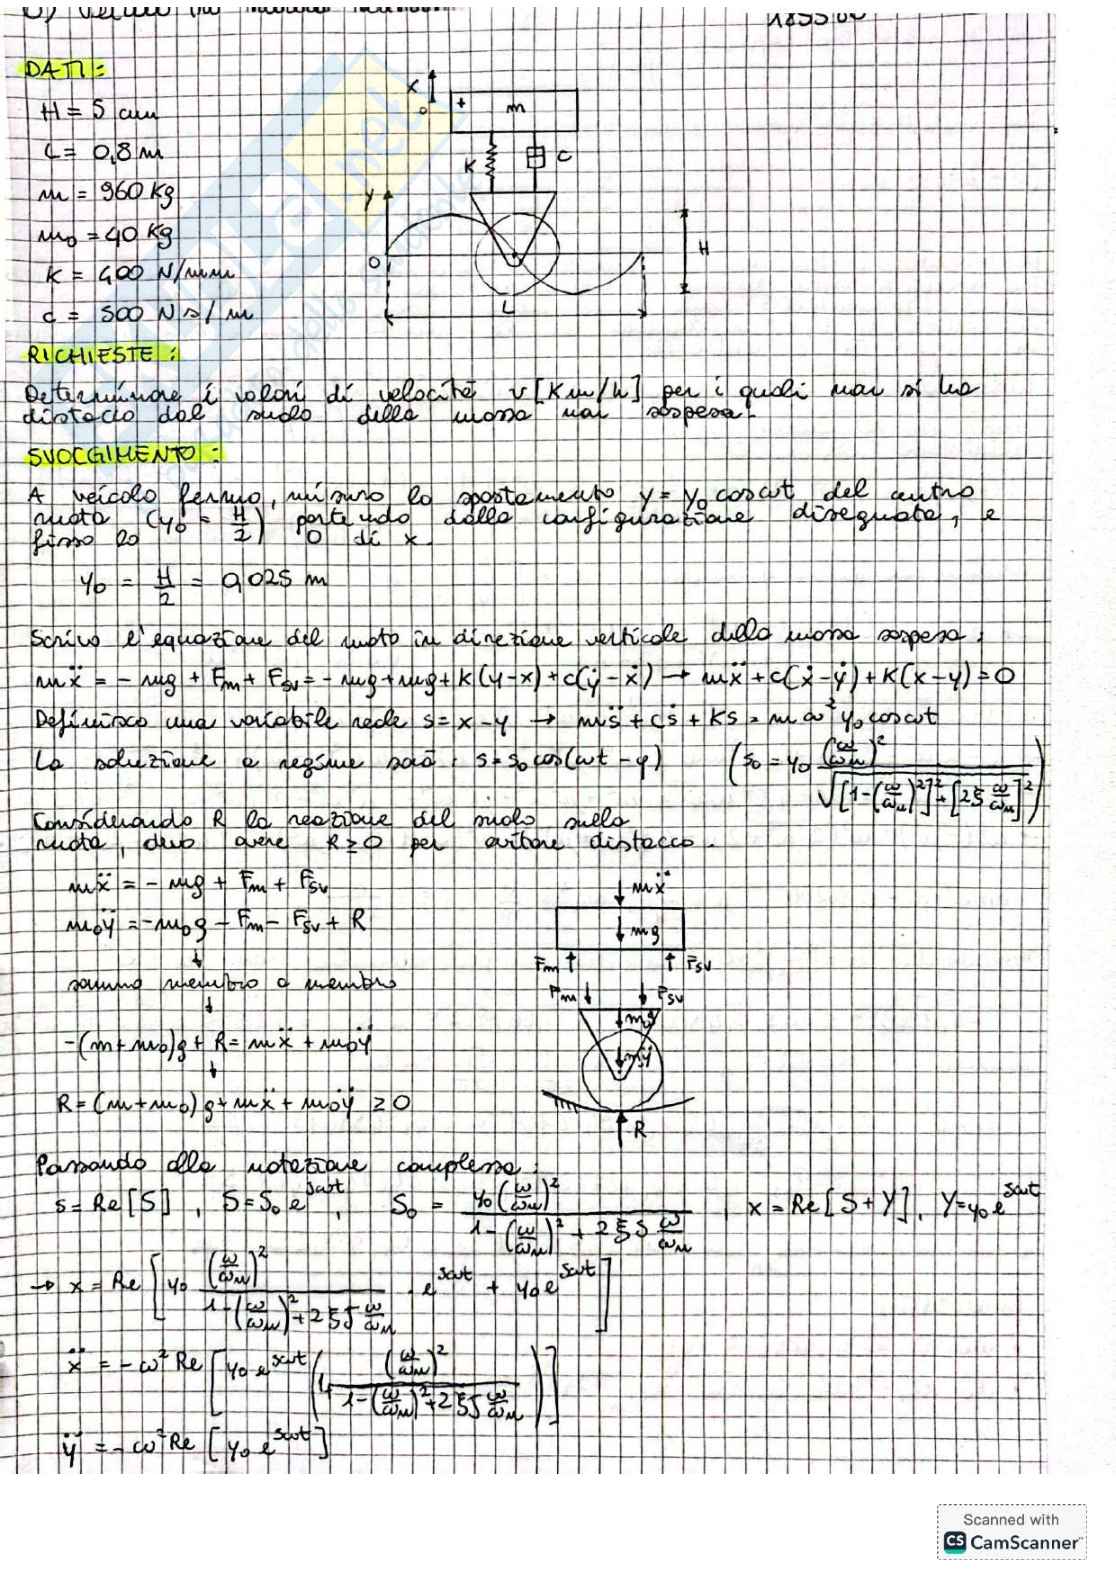 DATI:
H = 5 cm
L = 0,8 m
m = 960 Kg
m₀ = 40 Kg
K = 400 N/mm
c = 500 N s/m
x
0
+
m
K
c
y
0
H
L
RICHIESTE:
Determinare i valori di velocità v [Km/h] per i quali non si ha
distacco dal suolo della massa non sospesa.
SVOLGIMENTO:
A veicolo fermo, misuro lo spostamento y = y₀ cosωt del centro
ruota (y₀ = H/2) partendo dalla configurazione disegnata, e
fisso lo 0 di x.
y₀ = H/2 = 0,025 m
Scrivo l'equazione del moto in direzione verticale della massa sospesa:
mẍ = - mg + Fm + Fsv = - mg + mg + K(y-x) + c(ẏ-ẋ) → mẍ + c(ẋ-ẏ) + K(x-y) = 0
Definisco una variabile s = x-y → ms̈ + cṡ + Ks = mω²y₀cosωt
La soluzione a regime sarà: s = s₀ cos(ωt - φ) (s₀ = y₀ (ω/ωn)² / √([1-(ω/ωn)²]² + [2ξ ω/ωn]²))
Considerando R la reazione del suolo sulla
ruota, devo avere R ≥ 0 per evitare distacco.
mẍ = - mg + Fm + Fsv
m₀ÿ = - m₀g - Fm - Fsv + R
↓
sommo membro a membro
↓
-(m+m₀)g + R = mẍ + m₀ÿ
↓
R = (m+m₀)g + mẍ + m₀ÿ ≥ 0
mẍ
mg
Fm
Fsv
Fm
Fsv
m₀g
m₀ÿ
R
Passando alla notazione complessa:
s = Re[S], S = S₀ e^jωt, S₀ = y₀(ω/ωn)² / (1-(ω/ωn)² + 2ξj ω/ωn), x = Re[S+Y], Y = y₀e^jωt
→ x = Re [y₀ (ω/ωn)² / (1-(ω/ωn)² + 2ξj ω/ωn) · e^jωt + y₀e^jωt]
ẍ = - ω² Re [y₀ e^jωt (1 + (ω/ωn)² / (1-(ω/ωn)² + 2ξj ω/ωn))]
ÿ = - ω² Re [y₀ e^jωt]
Scanned with
CS CamScanner